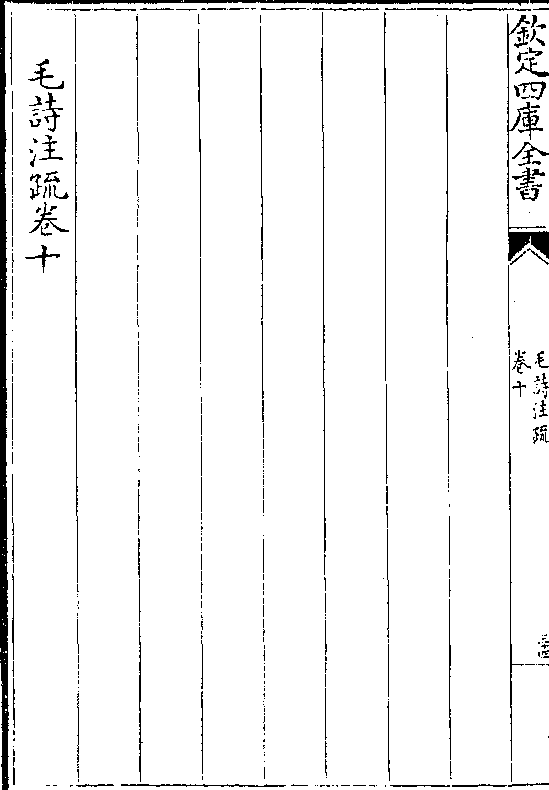 欽定四庫全書
毛詩注䟽
卷十
毛詩注䟽卷十